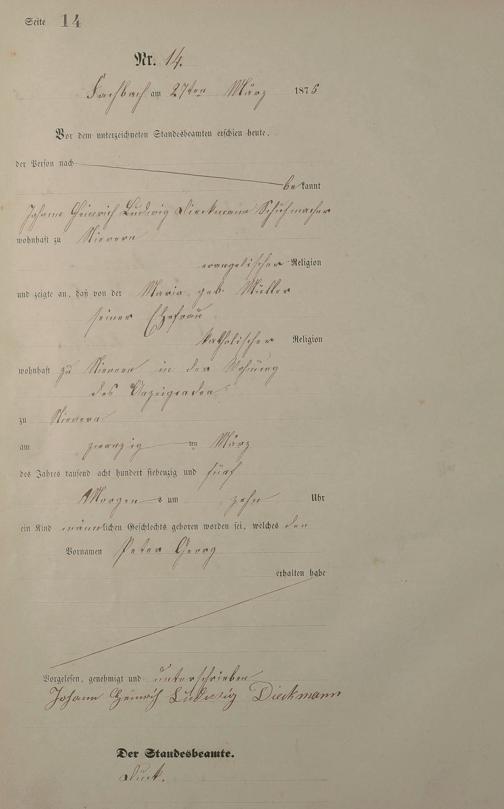 Seite 14
Nr. 14.
Fachbach am 27ten März 1875
Vor dem unterzeichneten Standesbeamten erschien heute,
der Person nach
bekannt
Johann Heinrich Ludwig Dieckmann Schuhmacher
wohnhaft zu Nievern
evangelischer Religion
und zeigte an, daß von der Maria geb. Müller
seiner Ehefrau
katholischer Religion
wohnhaft zu Nievern in der Wohnung
des Anzeigenden
zu Nievern
am zwanzig ten März
des Jahres tausend acht hundert siebenzig und fünf
Morgens um zehn Uhr
ein Kind männlichen Geschlechts geboren worden sei, welches den
Vornamen Peter Georg
erhalten habe
Vorgelesen, genehmigt und unterschrieben
Johann Heinrich Ludwig Dieckmann
Der Standesbeamte.